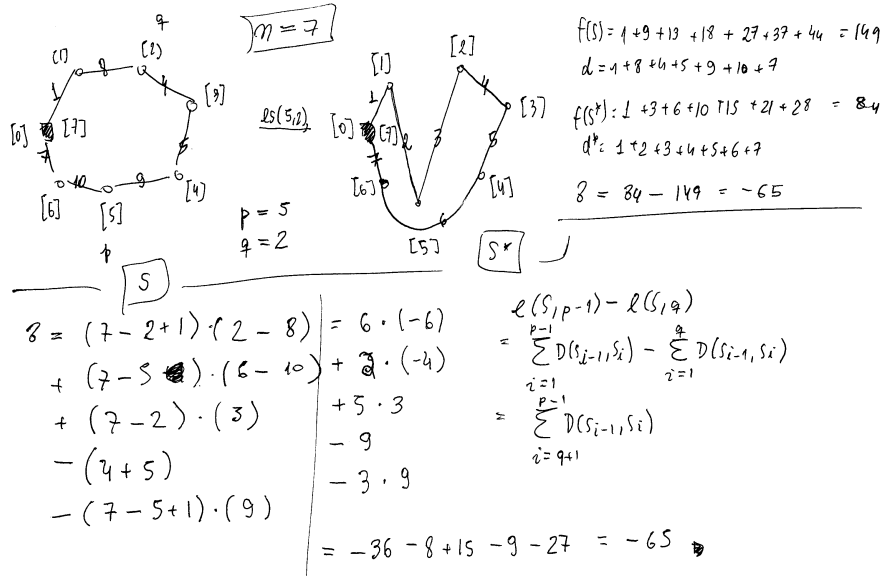 q
n = 7
[1] 8 [2]
1 4 [3]
[0] [7]
7 5
10 9 [4]
[6] [5]
p
S
ls(5,2)
p = 5
q = 2
[2]
[1] 4
1 [3]
[0] [7] 2 3 5
7
[6] [4]
6
[5]
S*
f(S) = 1 + 9 + 13 + 18 + 27 + 37 + 44 = 149
d = 1 + 8 + 4 + 5 + 9 + 10 + 7
f(S*) : 1 + 3 + 6 + 10 + 15 + 21 + 28 = 84
d* : 1 + 2 + 3 + 4 + 5 + 6 + 7
δ = 84 − 149 = −65
δ = (7 − 2 + 1) · (2 − 8) = 6 · (−6)
+ (7 − 5) · (6 − 10) + 2 · (−4)
+ (7 − 2) · (3) + 5 · 3
− (4 + 5) − 9
− (7 − 5 + 1) · (9) − 3 · 9
= −36 − 8 + 15 − 9 − 27 = −65
ℓ(S, p−1) − ℓ(S, q)
= p−1 ∑ i=1 D(Si−1, Si) − q ∑ i=1 D(Si−1, Si)
= p−1 ∑ i=q+1 D(Si−1, Si)